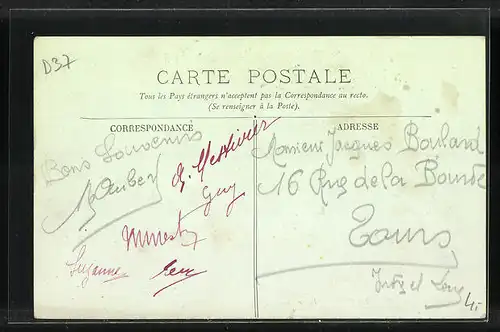 D37
CARTE POSTALE
Tous les Pays étrangers n'acceptent pas la Correspondance au recto.
(Se renseigner à la Poste).
CORRESPONDANCE
Bons Souvenirs
Guy
Suzanne
ADRESSE
Monsieur Jacques Bouland
16 Rue de la Bourde
Tours
Indre et Loire
4,-